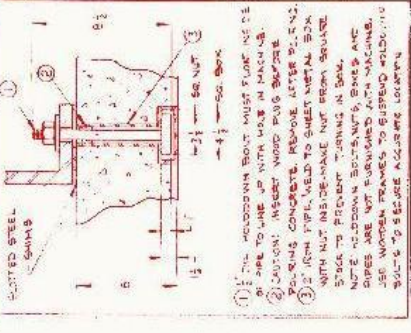 SLOTTED STEEL
SHIMS
①
②
③
8 1/2
6
1 1/2
1
3 1/2 SQ. NUT
4 1/2 SQ. BOX
① HOLDDOWN BOLT MUST FLOAT INSIDE
OF PIPE TO LINE UP WITH HOLE IN MACHINE.
② CAUTION: INSERT WOOD PLUG BEFORE
POURING CONCRETE. REMOVE AFTER
③ PIPE, WELD TO SHEET METAL BOX
WITH NUT INSIDE. MAKE NUT FROM SQUARE
STOCK TO PREVENT TURNING IN BOX.
NOTE: HOLDDOWN BOLTS, NUTS, BOXES AND
PIPES ARE NOT FURNISHED WITH MACHINE.
USE WOODEN FRAMES TO SUSPEND HOLDDOWN
BOLTS TO SECURE ACCURATE LOCATION